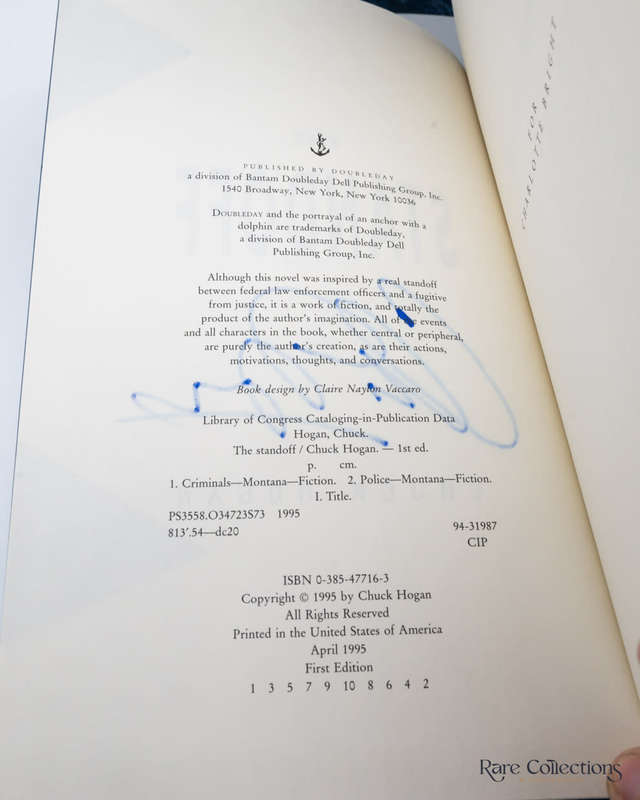 PUBLISHED BY DOUBLEDAY
a division of Bantam Doubleday Dell Publishing Group, Inc.
1540 Broadway, New York, New York 10036
DOUBLEDAY and the portrayal of an anchor with a
dolphin are trademarks of Doubleday,
a division of Bantam Doubleday Dell
Publishing Group, Inc.
Although this novel was inspired by a real standoff
between federal law enforcement officers and a fugitive
from justice, it is a work of fiction, and totally the
product of the author's imagination. All of the events
and all characters in the book, whether central or peripheral,
are purely the author's creation, as are their actions,
motivations, thoughts, and conversations.
Book design by Claire Naylon Vaccaro
Library of Congress Cataloging-in-Publication Data
Hogan, Chuck.
The standoff / Chuck Hogan. — 1st ed.
p. cm.
1. Criminals—Montana—Fiction. 2. Police—Montana—Fiction.
I. Title.
PS3558.O34723S73 1995
813'.54—dc20 94-31987
CIP
ISBN 0-385-47716-3
Copyright © 1995 by Chuck Hogan
All Rights Reserved
Printed in the United States of America
April 1995
First Edition
1 3 5 7 9 10 8 6 4 2
FOR
CHARLOTTE BRIGHT
Rare Collections